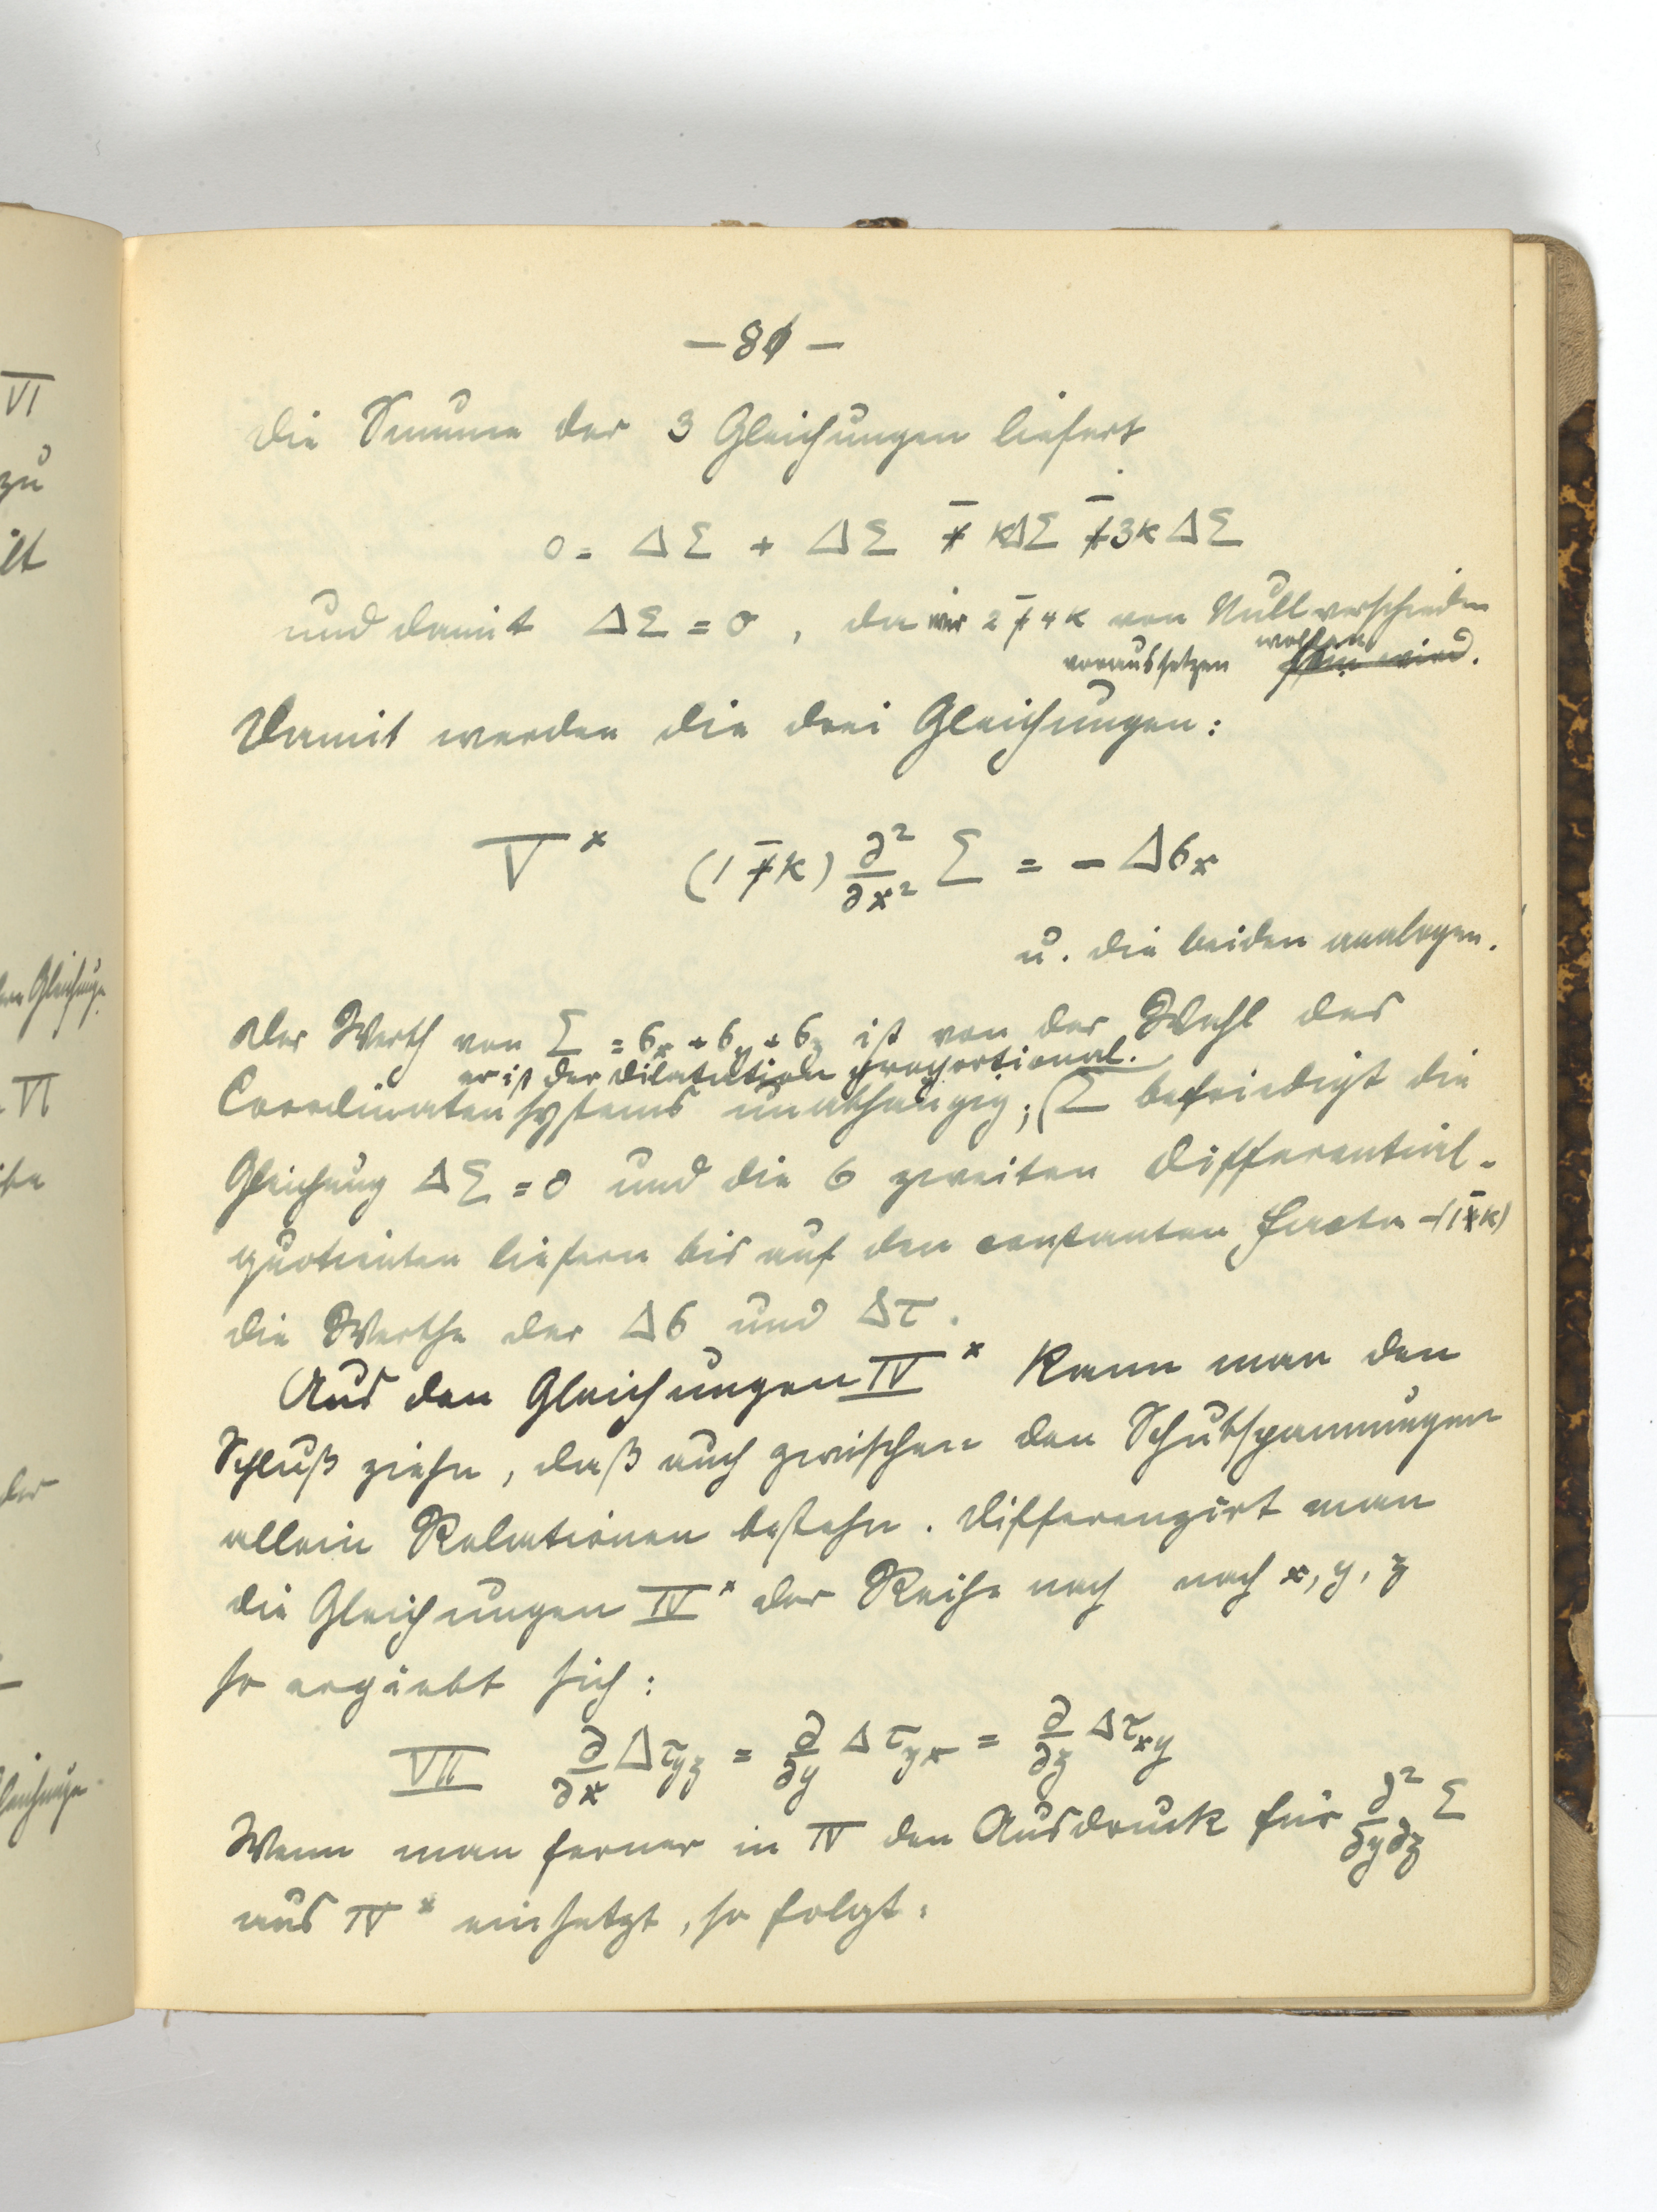 VI
zu
ilt
Gleichunge.
VI
der
Gleichunge
— 81 —
die Summe der 3 Gleichungen liefert
0 = ΔΣ + ΔΣ − kΔΣ − 3k ΔΣ
und damit ΔΣ = 0, da wir 2 − 4k von Null verschieden
voraussetzen wollen sein wird.
Damit werden die drei Gleichungen:
V* (1 − k) ∂²/∂x² Σ = − Δσx
u. die beiden analogen.
Der Werth von Σ = σx + σy + σz ist von der Wahl des
er ist der Dilatation proportional.
Coordinatensystems unabhängig; (Σ befriedigt die
Gleichung ΔΣ = 0 und die 6 zweiten Differential-
quotienten liefern bis auf den constanten Factor −(1−k)
die Werthe der Δσ und Δτ.
Aus den Gleichungen IV* kann man den
Schluß ziehn, daß auch zwischen den Schubspannungen
allein Relationen bestehn. Differenzirt man
die Gleichungen IV* der Reihe nach nach x, y, z
so ergiebt sich:
VII ∂/∂x Δτyz = ∂/∂y Δτzx = ∂/∂z Δτxy
Wenn man ferner in IV den Ausdruck für ∂²/∂y∂z Σ
aus IV* einsetzt, so folgt: